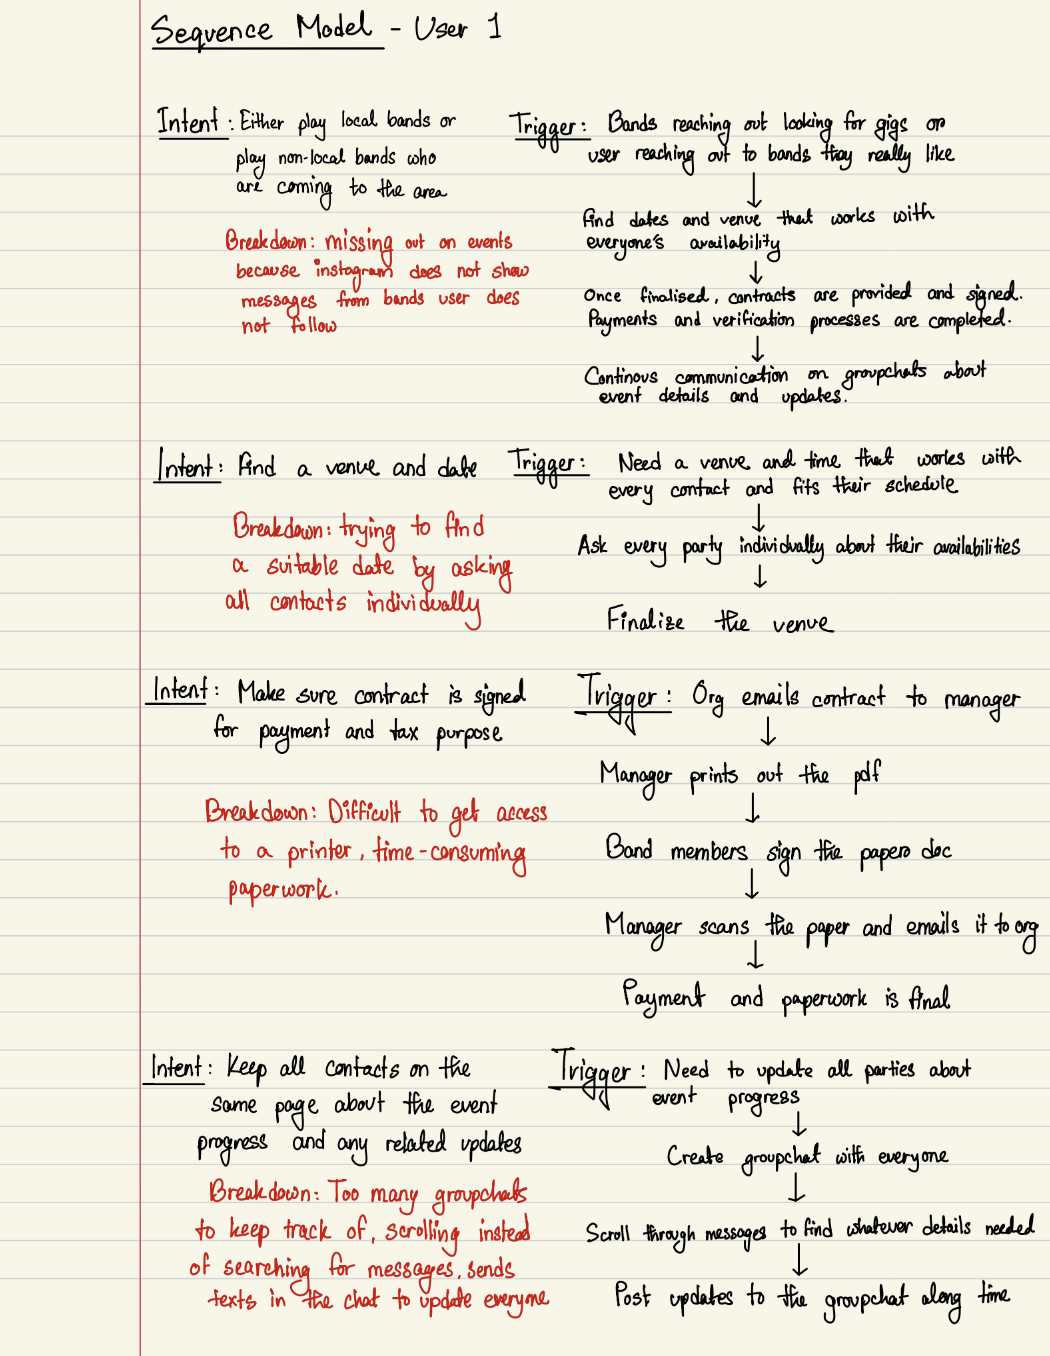 Sequence Model - User 1
Intent: Either play local bands or
play non-local bands who
are coming to the area
Breakdown: missing out on events
because instagram does not show
messages from bands user does
not follow
Trigger: Bands reaching out looking for gigs or
user reaching out to bands they really like
↓
find dates and venue that works with
everyone's availability
↓
Once finalised, contracts are provided and signed.
Payments and verification processes are completed.
↓
Continous communication on groupchats about
event details and updates.
Intent: find a venue and date
Breakdown: trying to find
a suitable date by asking
all contacts individually
Trigger: Need a venue and time that works with
every contact and fits their schedule
↓
Ask every party individually about their availabilities
↓
Finalize the venue
Intent: Make sure contract is signed
for payment and tax purpose
Breakdown: Difficult to get access
to a printer, time-consuming
paperwork.
Trigger: Org emails contract to manager
↓
Manager prints out the pdf
↓
Band members sign the papero doc
↓
Manager scans the paper and emails it to org
↓
Payment and paperwork is final
Intent: Keep all contacts on the
same page about the event
progress and any related updates
Breakdown: Too many groupchats
to keep track of, scrolling instead
of searching for messages, sends
texts in the chat to update everyone
Trigger: Need to update all parties about
event progress
↓
Create groupchat with everyone
↓
Scroll through messages to find whatever details needed
↓
Post updates to the groupchat along time